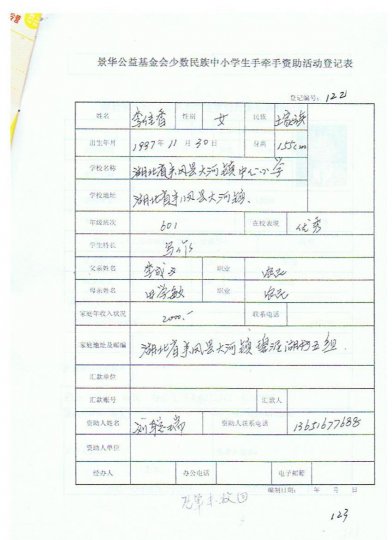 景华公益基金会少数民族中小学生手牵手资助活动登记表
登记编号：122
姓名 李佳香 性别 女 民族 土家族
出生年月 1997年11月30日 身高 155cm
学校名称 湖北省来凤县大河镇中心小学
学校地址 湖北省来凤县大河镇.
年级班次 601 在校表现 优秀
学生特长 写作
父亲姓名 李 职业 农民
母亲姓名 田学敏 职业 农民
家庭年收入状况 2000.- 联系电话
家庭地址及邮编 湖北省来凤县大河镇 五组.
汇款单位
汇款帐号 汇款人
资助人姓名 刘 瑞 资助人联系电话 13651677688
资助人单位
经办人 办公电话 电子邮箱
编制日期： 年 月 日
123